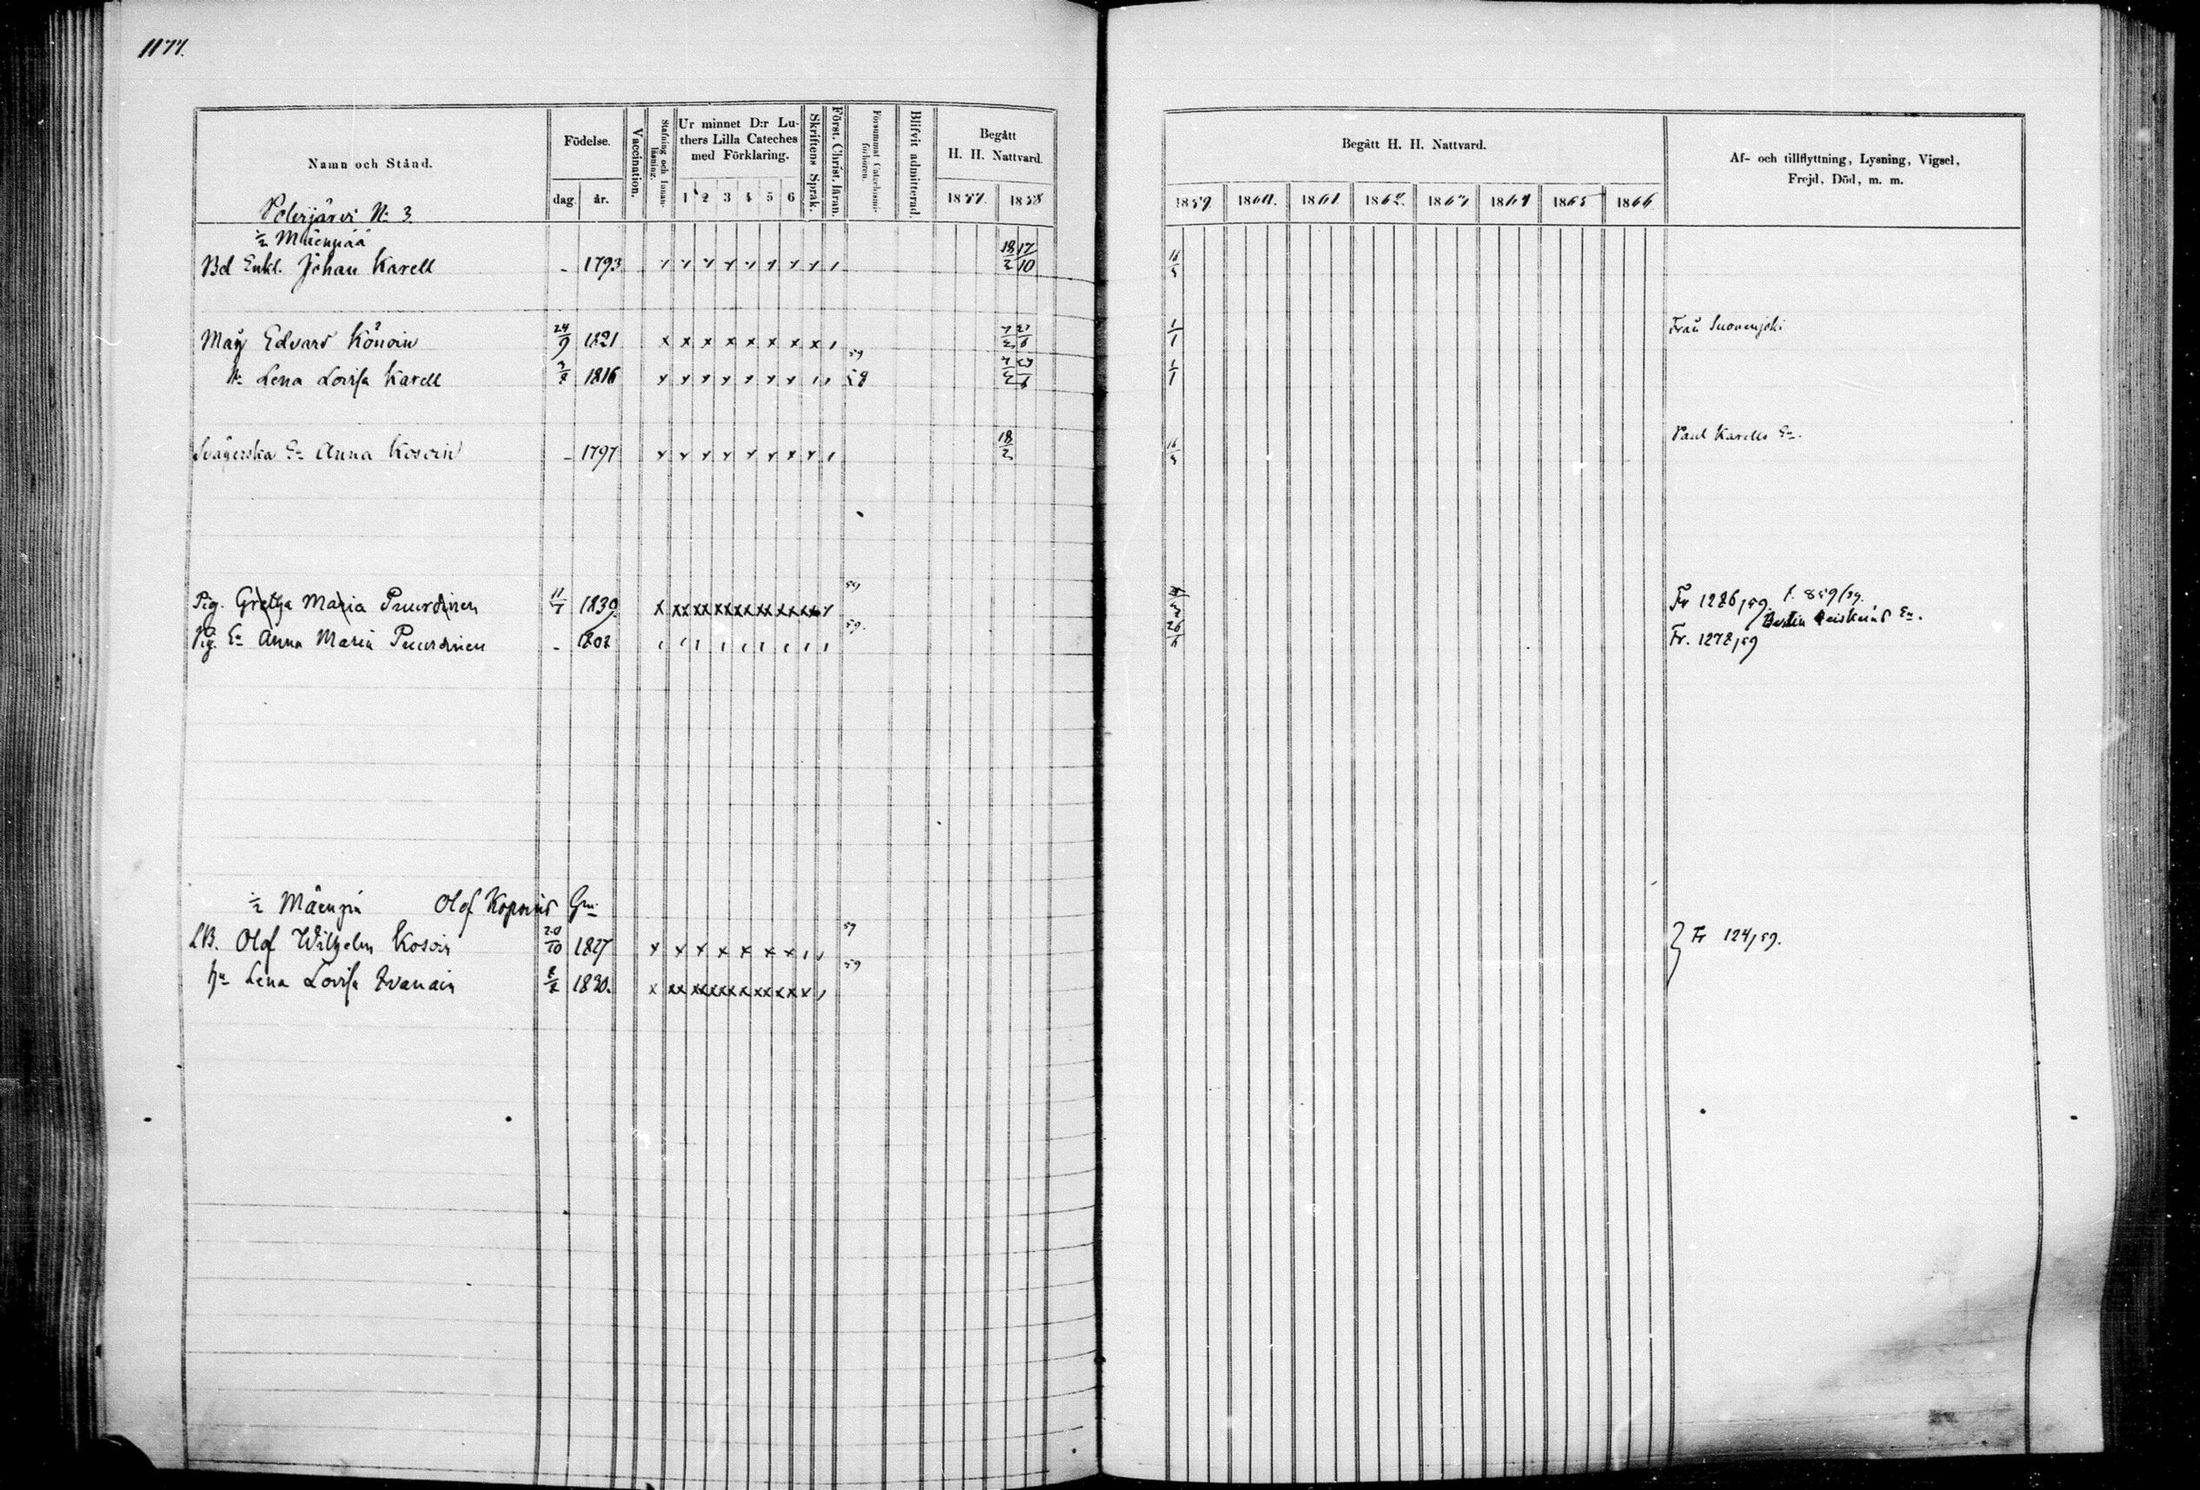 1177.
Namn och Stånd.
Födelse.
dag.
år.
Vaccination.
Stafning och Innan-
läsning.
Ur minnet D:r Lu-
thers Lilla Cateches
med Förklaring.
1 2 3 4 5 6
Skriftens Språk.
Först. Christ. läran.
Försummat Catechismi-
förhören.
Blifvit admitterad.
Begått
H. H. Nattvard.
1857. 1858
Begått H. H. Nattvard.
1859. 1860. 1861 1862. 1863 1864 1865 1866
Af- och tillflyttning, Lysning, Vigsel,
Frejd, Död, m. m.
N: 3.
1/2 Mäenpää
Bd Enkl. Johan Karell - 1793 18/2 17/10
Edvard Könöin 24/9 1821 1/1 Från
Lena Lovisa Karell 1816 59 58 1/1
Svägerska En Anna Kosoin - 1797 18/2 Paul Karells En.
Pig. Gretha Maria Puurdinen 11/7 1839 59 Fr 1286/59. f. 859/59.
Pig. En Anna Maria Puurdinen - 1802 59. 26 Fr. 1272/59
En.
1/2 Mäenpää Olof
LB. Olof Wilhelm Kosoin 20/10 1827 59 Fr 124/59.
hu Lena Lovisa 1830. 59